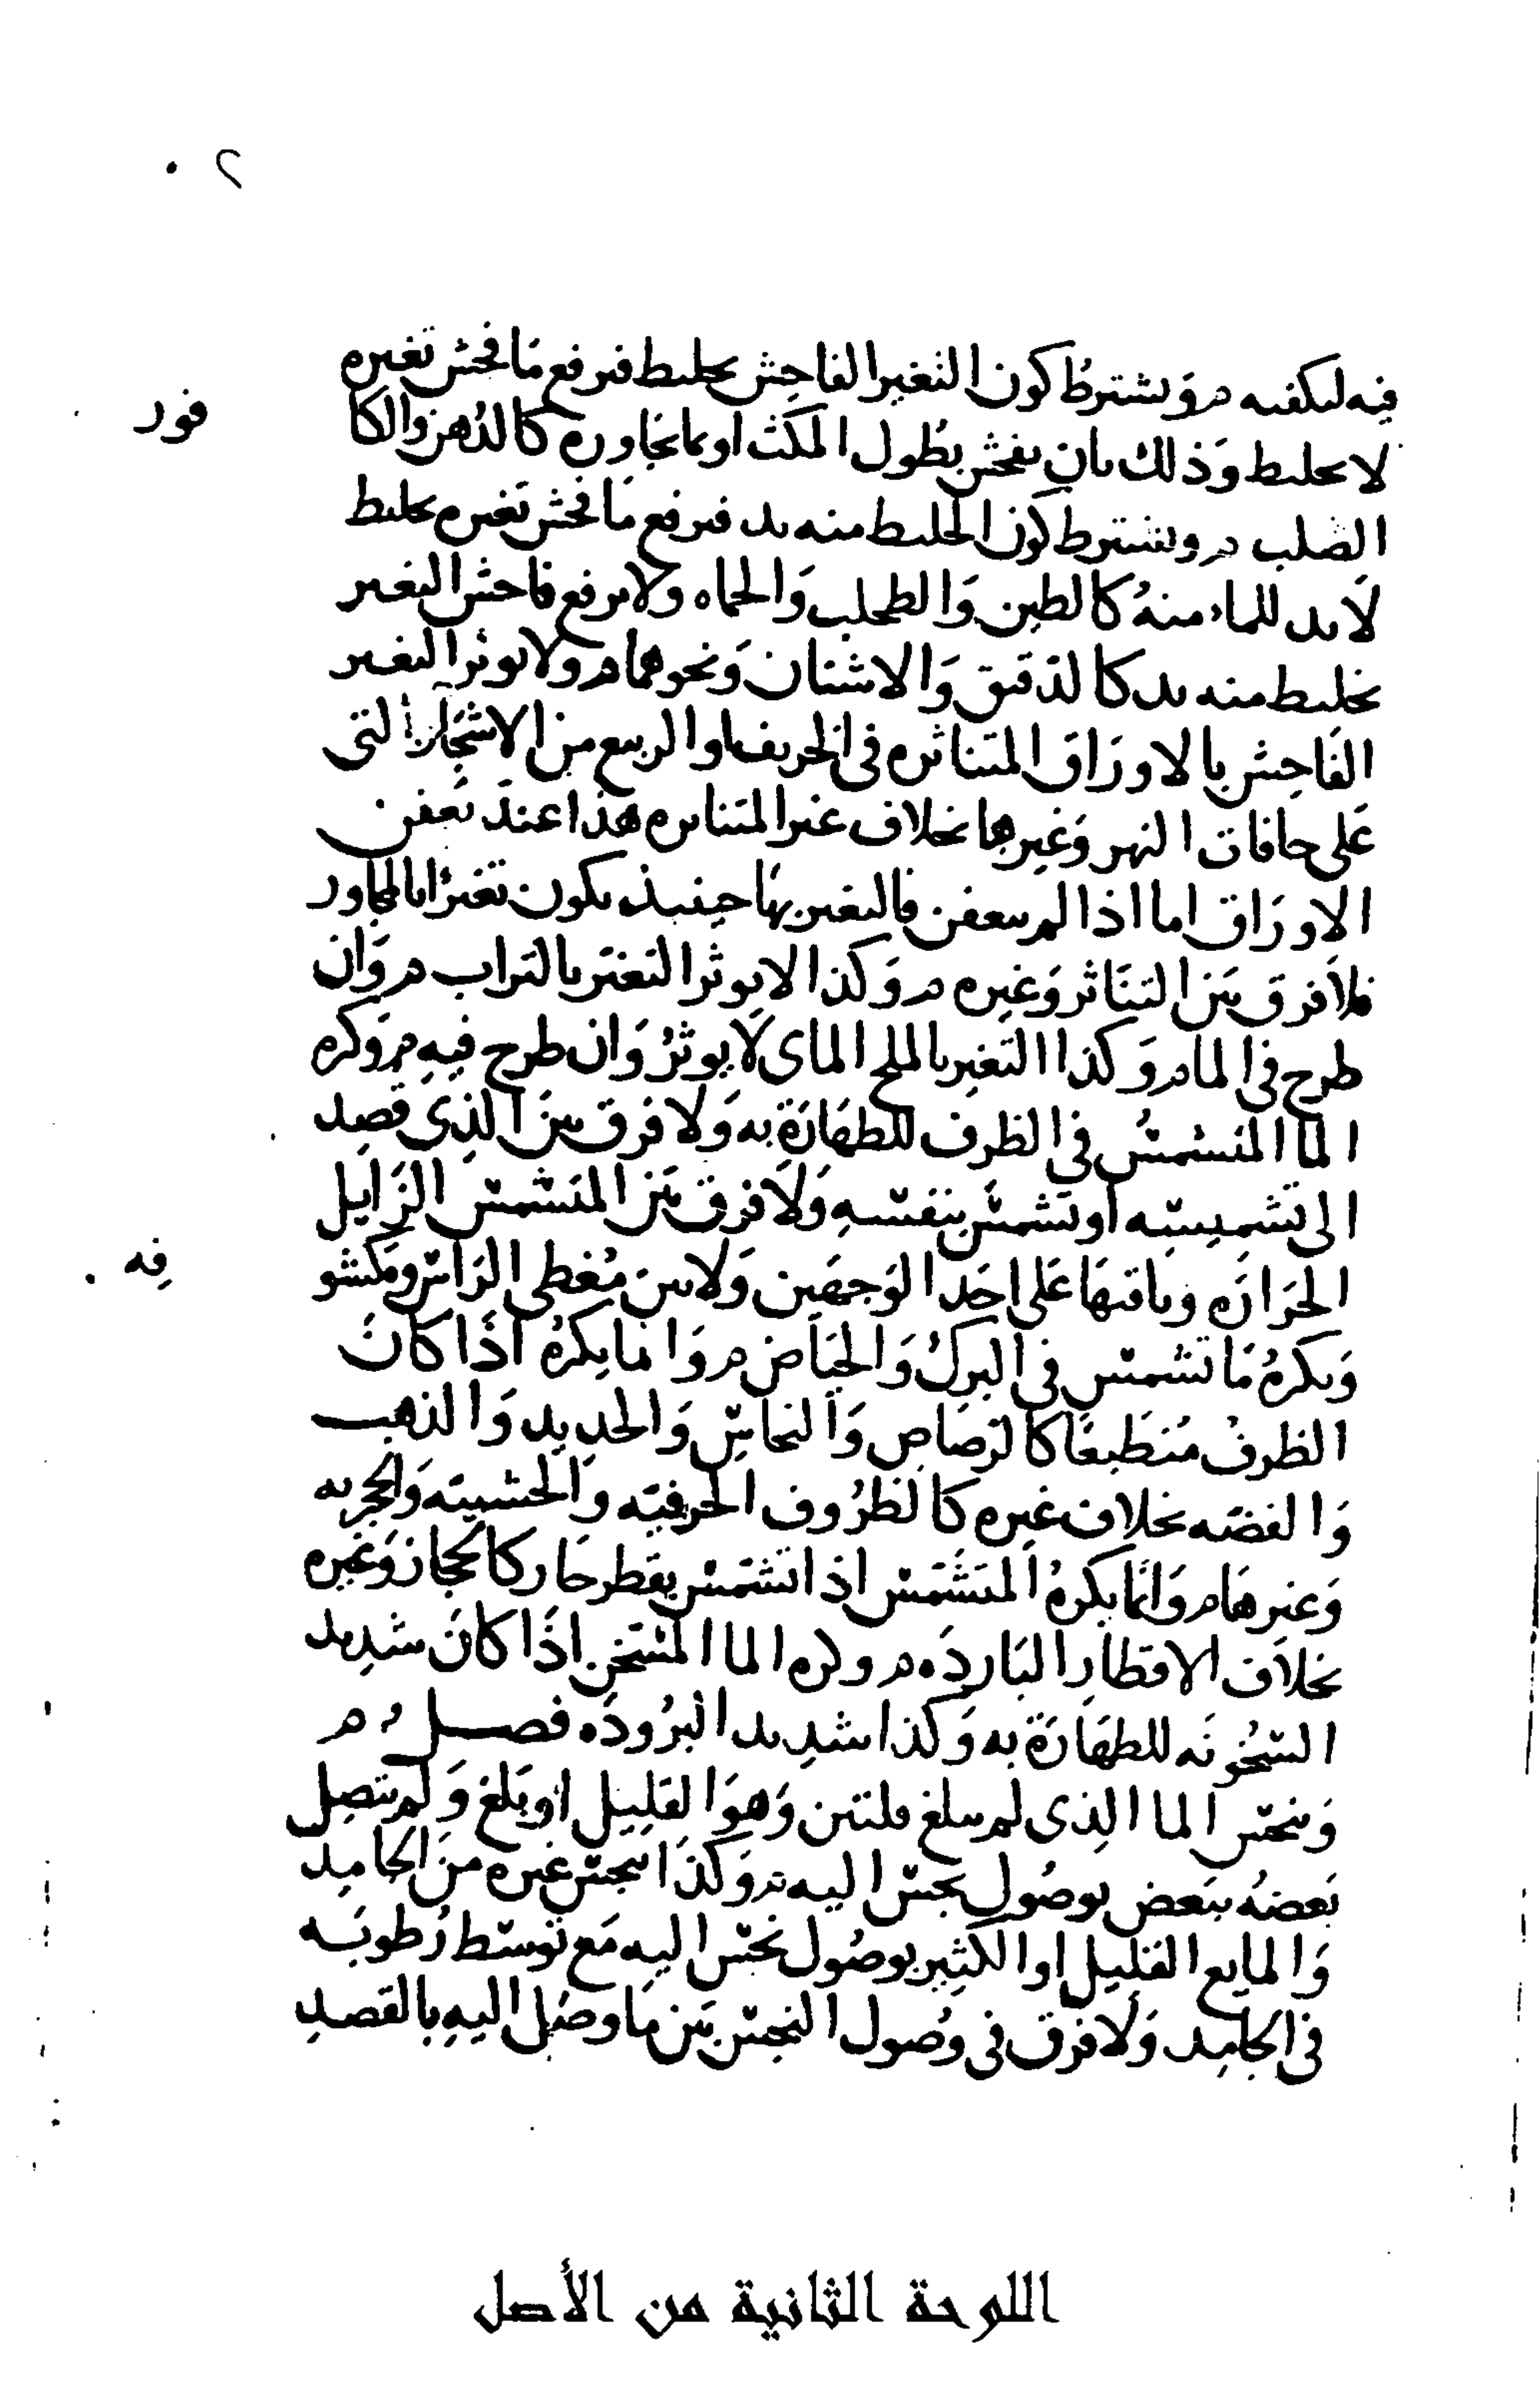 ٢
فيه لىكفىه م ويشترط كون التغير الفاحش بخليط فيرفع ما فحش تغيره
لا بخليط وذلك بان يفحش بطول المكث او بما يجاوره كالدهن والكا
فور
الصلب م ويشترط كون الخليط منه بد فيرفع ما فحش تغيره بخليط
لا بد للماء منه كالطين والطحلب والحماه ولا يرفع فاحش التغير
بخليط منه بد كالدقيق والاشنان ونحوهما م ولا يوثر التغير
الفاحش بالاوراق المتناثره في الخريف او الربيع من الاشجار التي
على حافات النهر وغيرها بخلاف غير المتناثره هذا عند تعفن
الاوراق اما اذا لم يتعفن فالتغير بها حينيذ يكون تغيرا بالمجاور
فلا فرق بين التناثر وغيره م وكذا لا يوثر التغير بالتراب م وان
طرح في الما م وكذا التغير بالملح الماي لا يوثر وان طرح فيه م وكره
الما المتشمس في الظرف للطهارة به ولا فرق بين الذي قصد
الى تشميسه او تشمس بنفسه ولا فرق بين المتشمس الزايل
الحراره وباقيها على احد الوجهين ولا بين مغطى الراس ومكشو
فه
ويكره ما تشمس في البرك والحياض م وانما يكره اذا كان
الظرف منطبعا كالرصاص والنحاس والحديد والذهب
والفضه بخلاف غيره كالظروف الخرفيه والخشبيه والحجريه
وغيرها م وانما يكره المتشمس اذا تشمس بقطر حار كالحجاز وغيره
بخلاف الاقطار البارده م وكره الما المسخن اذا كان شديد
السخونه للطهارة به وكذا شديد البروده فصل م
وينجس الما الذي لم يبلغ قلتين وهو القليل او بلغ ولم يتصل
بعضه ببعض بوصول نجس اليه م وكذا ينجس غيره من الجامد
والمايع القليل او الكثير بوصول نجس اليه مع توسط رطوبه
في الجامد ولا فرق في وصول النجس بين ما وصل اليه بالقصد
اللوحة الثانية من الأصل